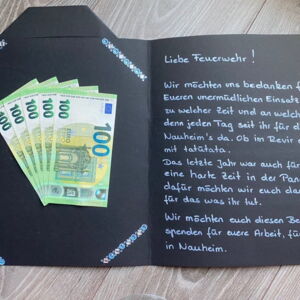 100
100
100
100
100
EURO
100
Liebe Feuerwehr!
Wir möchten uns bedanken f
Eueren unermüdlichen Einsatz
zu welcher Zeit und an welch
denn jeden Tag seit ihr für d
Nauheim's da. Ob im Revir
mit tatütata.
Das letzte Jahr war auch für
eine harte Zeit in der Pan
dafür möchten wir euch dan
für das was ihr tut.
Wir möchten euch diesen Be
spenden für euere Arbeit, fü
in Nauheim.